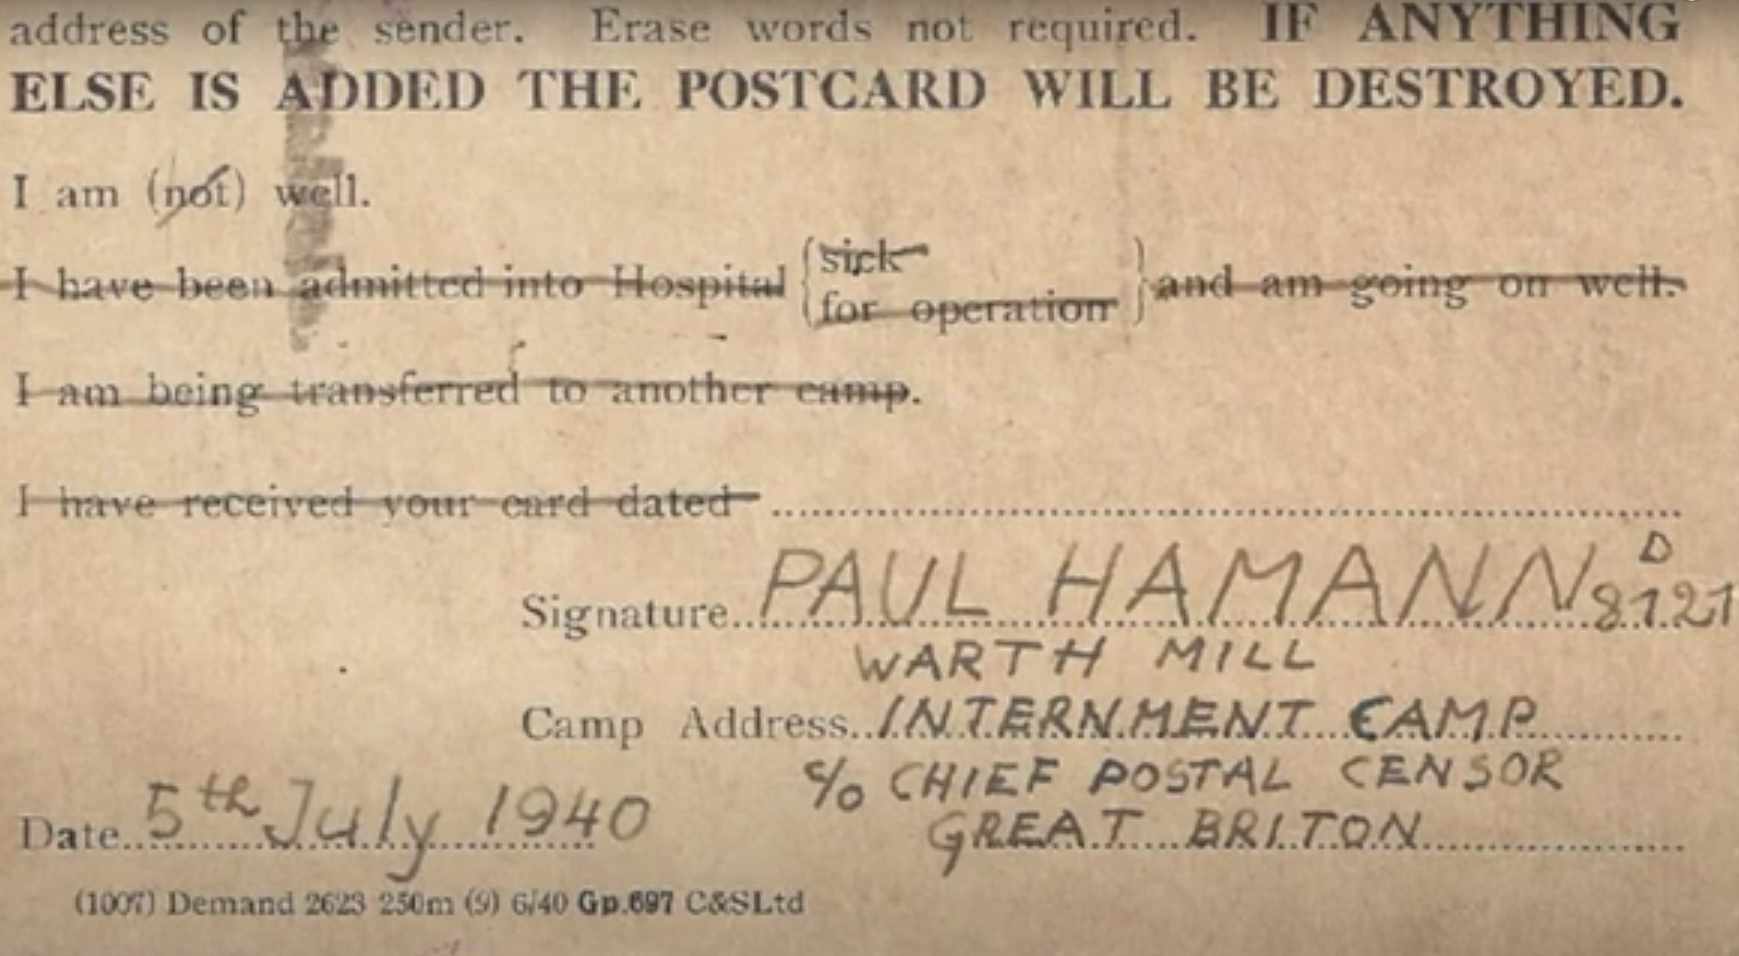 address of the sender. Erase words not required. IF ANYTHING
ELSE IS ADDED THE POSTCARD WILL BE DESTROYED.
I am (not) well.
I have been admitted into Hospital { sick } and am going on well.
for operation
I am being transferred to another camp.
I have received your card dated
Signature PAUL HAMANN D 8121
WARTH MILL
Camp Address INTERNMENT CAMP
c/o CHIEF POSTAL CENSOR
Date 5th July 1940 GREAT BRITON
(1007) Demand 2623 250m (9) 6/40 Gp.697 C&SLtd